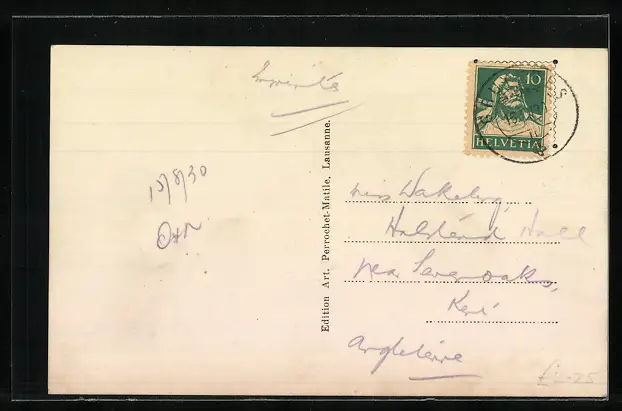 Imprimés
10
HELVETIA
15/8/30
Edition Art. Perrochet-Matile, Lausanne.
Miss Wakeley,
Halstead Hall
near Sevenoaks,
Kent
Angleterre